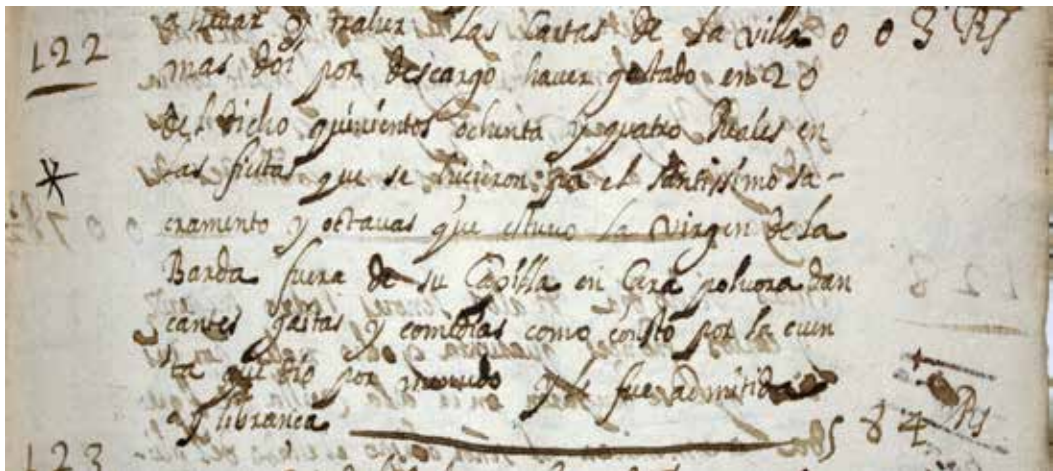 a llevar y traher las Cartas de la villa 0 0 3 Rs
122 mas doi por descargo haver gastado en 20
del dicho quinientos ochenta y quatro Reales en
las fiestas que se hicieron por el santissimo sa-
cramento y octavas que estuvo la Virgen de la
Barda fuera de su Capilla en Cera polvora dan
cantes gaitas y comedias como constó por la cuen
ta que dio por menudo y le fue admitida
ay libranca 584 Rs
123